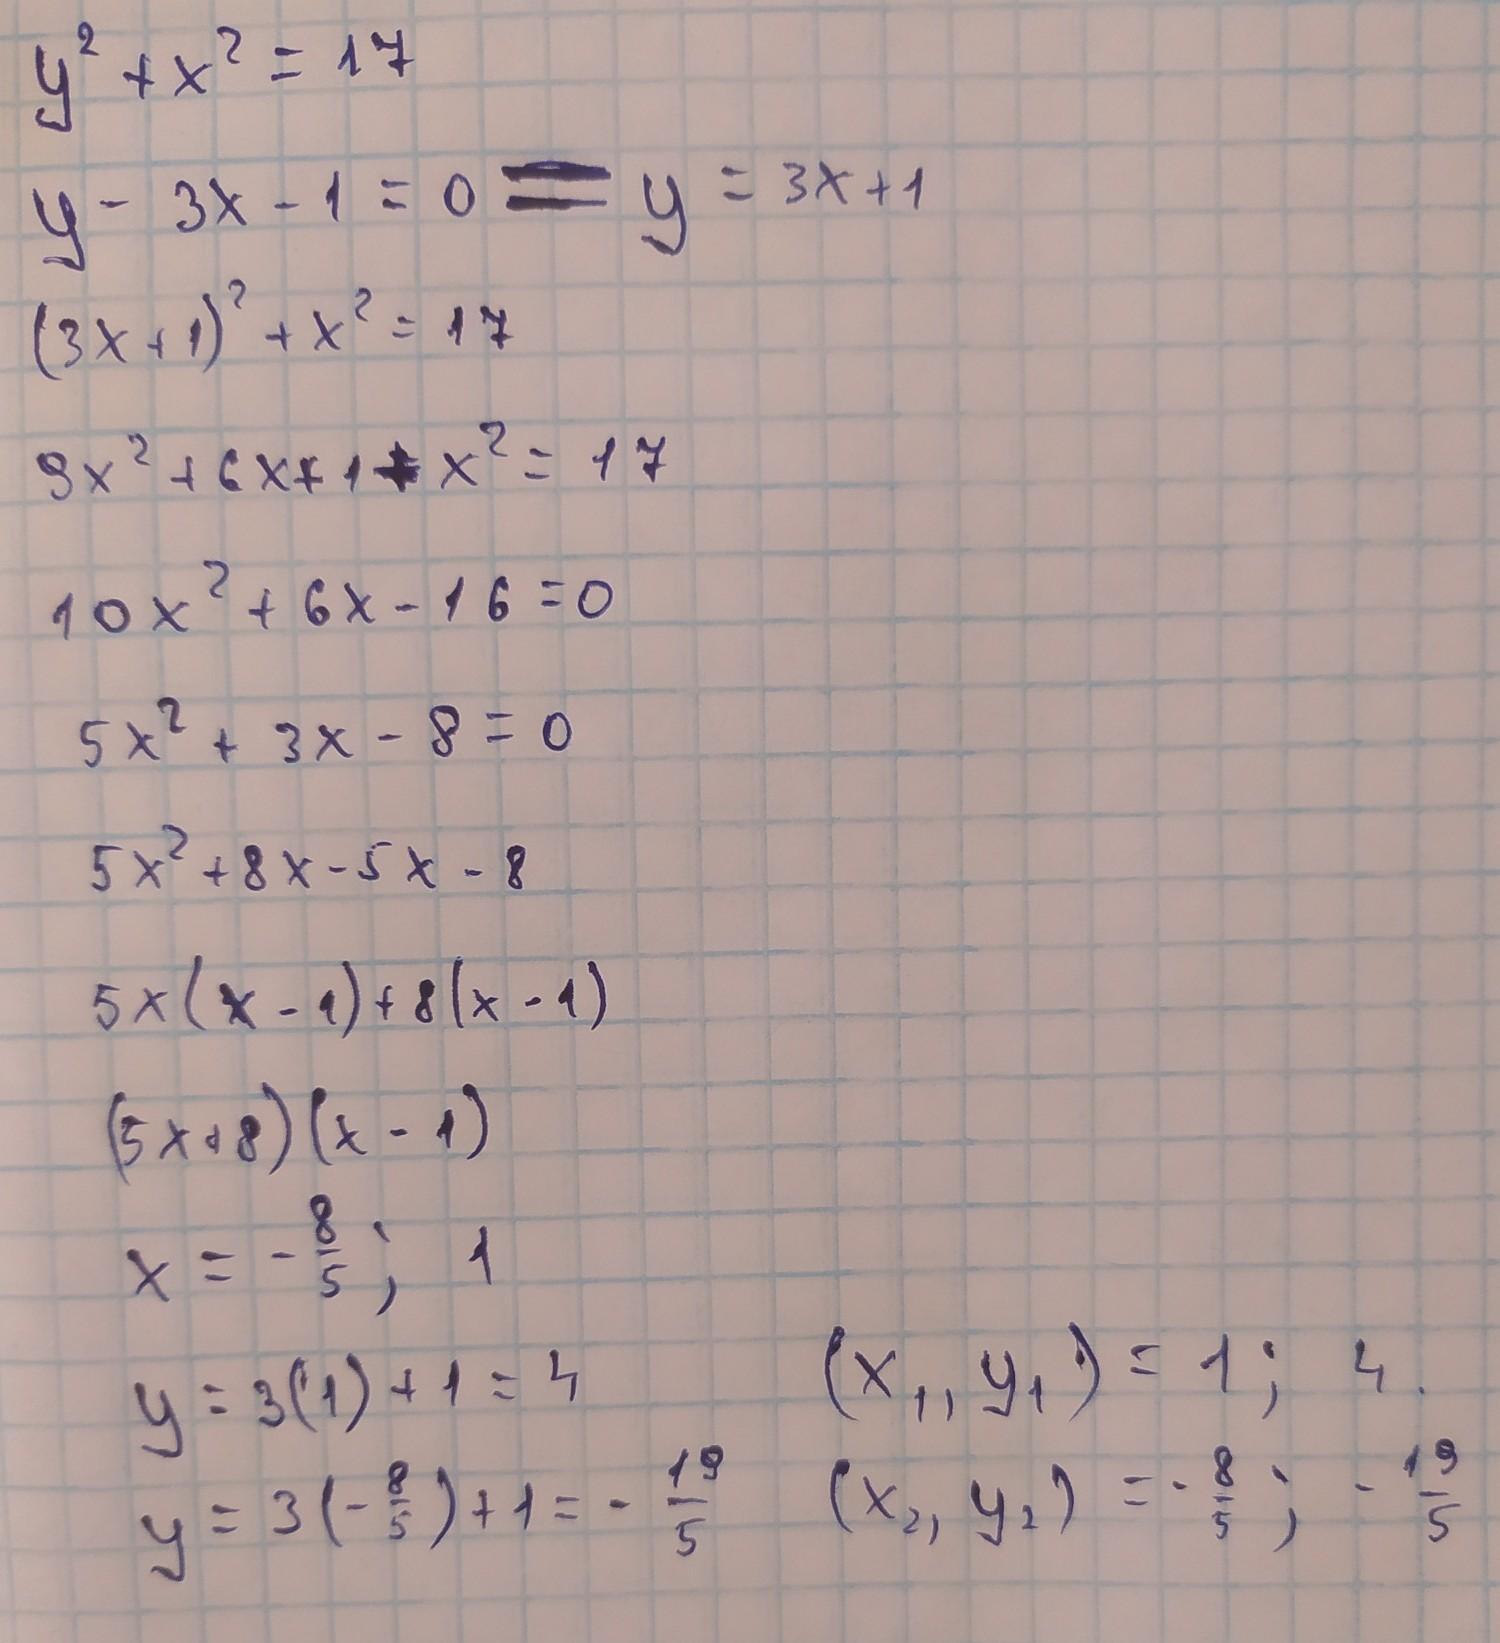 y² + x² = 17
y - 3x - 1 = 0 = y = 3x + 1
(3x + 1)² + x² = 17
9x² + 6x + 1 + x² = 17
10x² + 6x - 16 = 0
5x² + 3x - 8 = 0
5x² + 8x - 5x - 8
5x(x - 1) + 8(x - 1)
(5x + 8)(x - 1)
x = - 8/5 ; 1
y = 3(1) + 1 = 4
y = 3(- 8/5) + 1 = - 19/5
(x₁, y₁) = 1 ; 4.
(x₂, y₂) = - 8/5 ; - 19/5